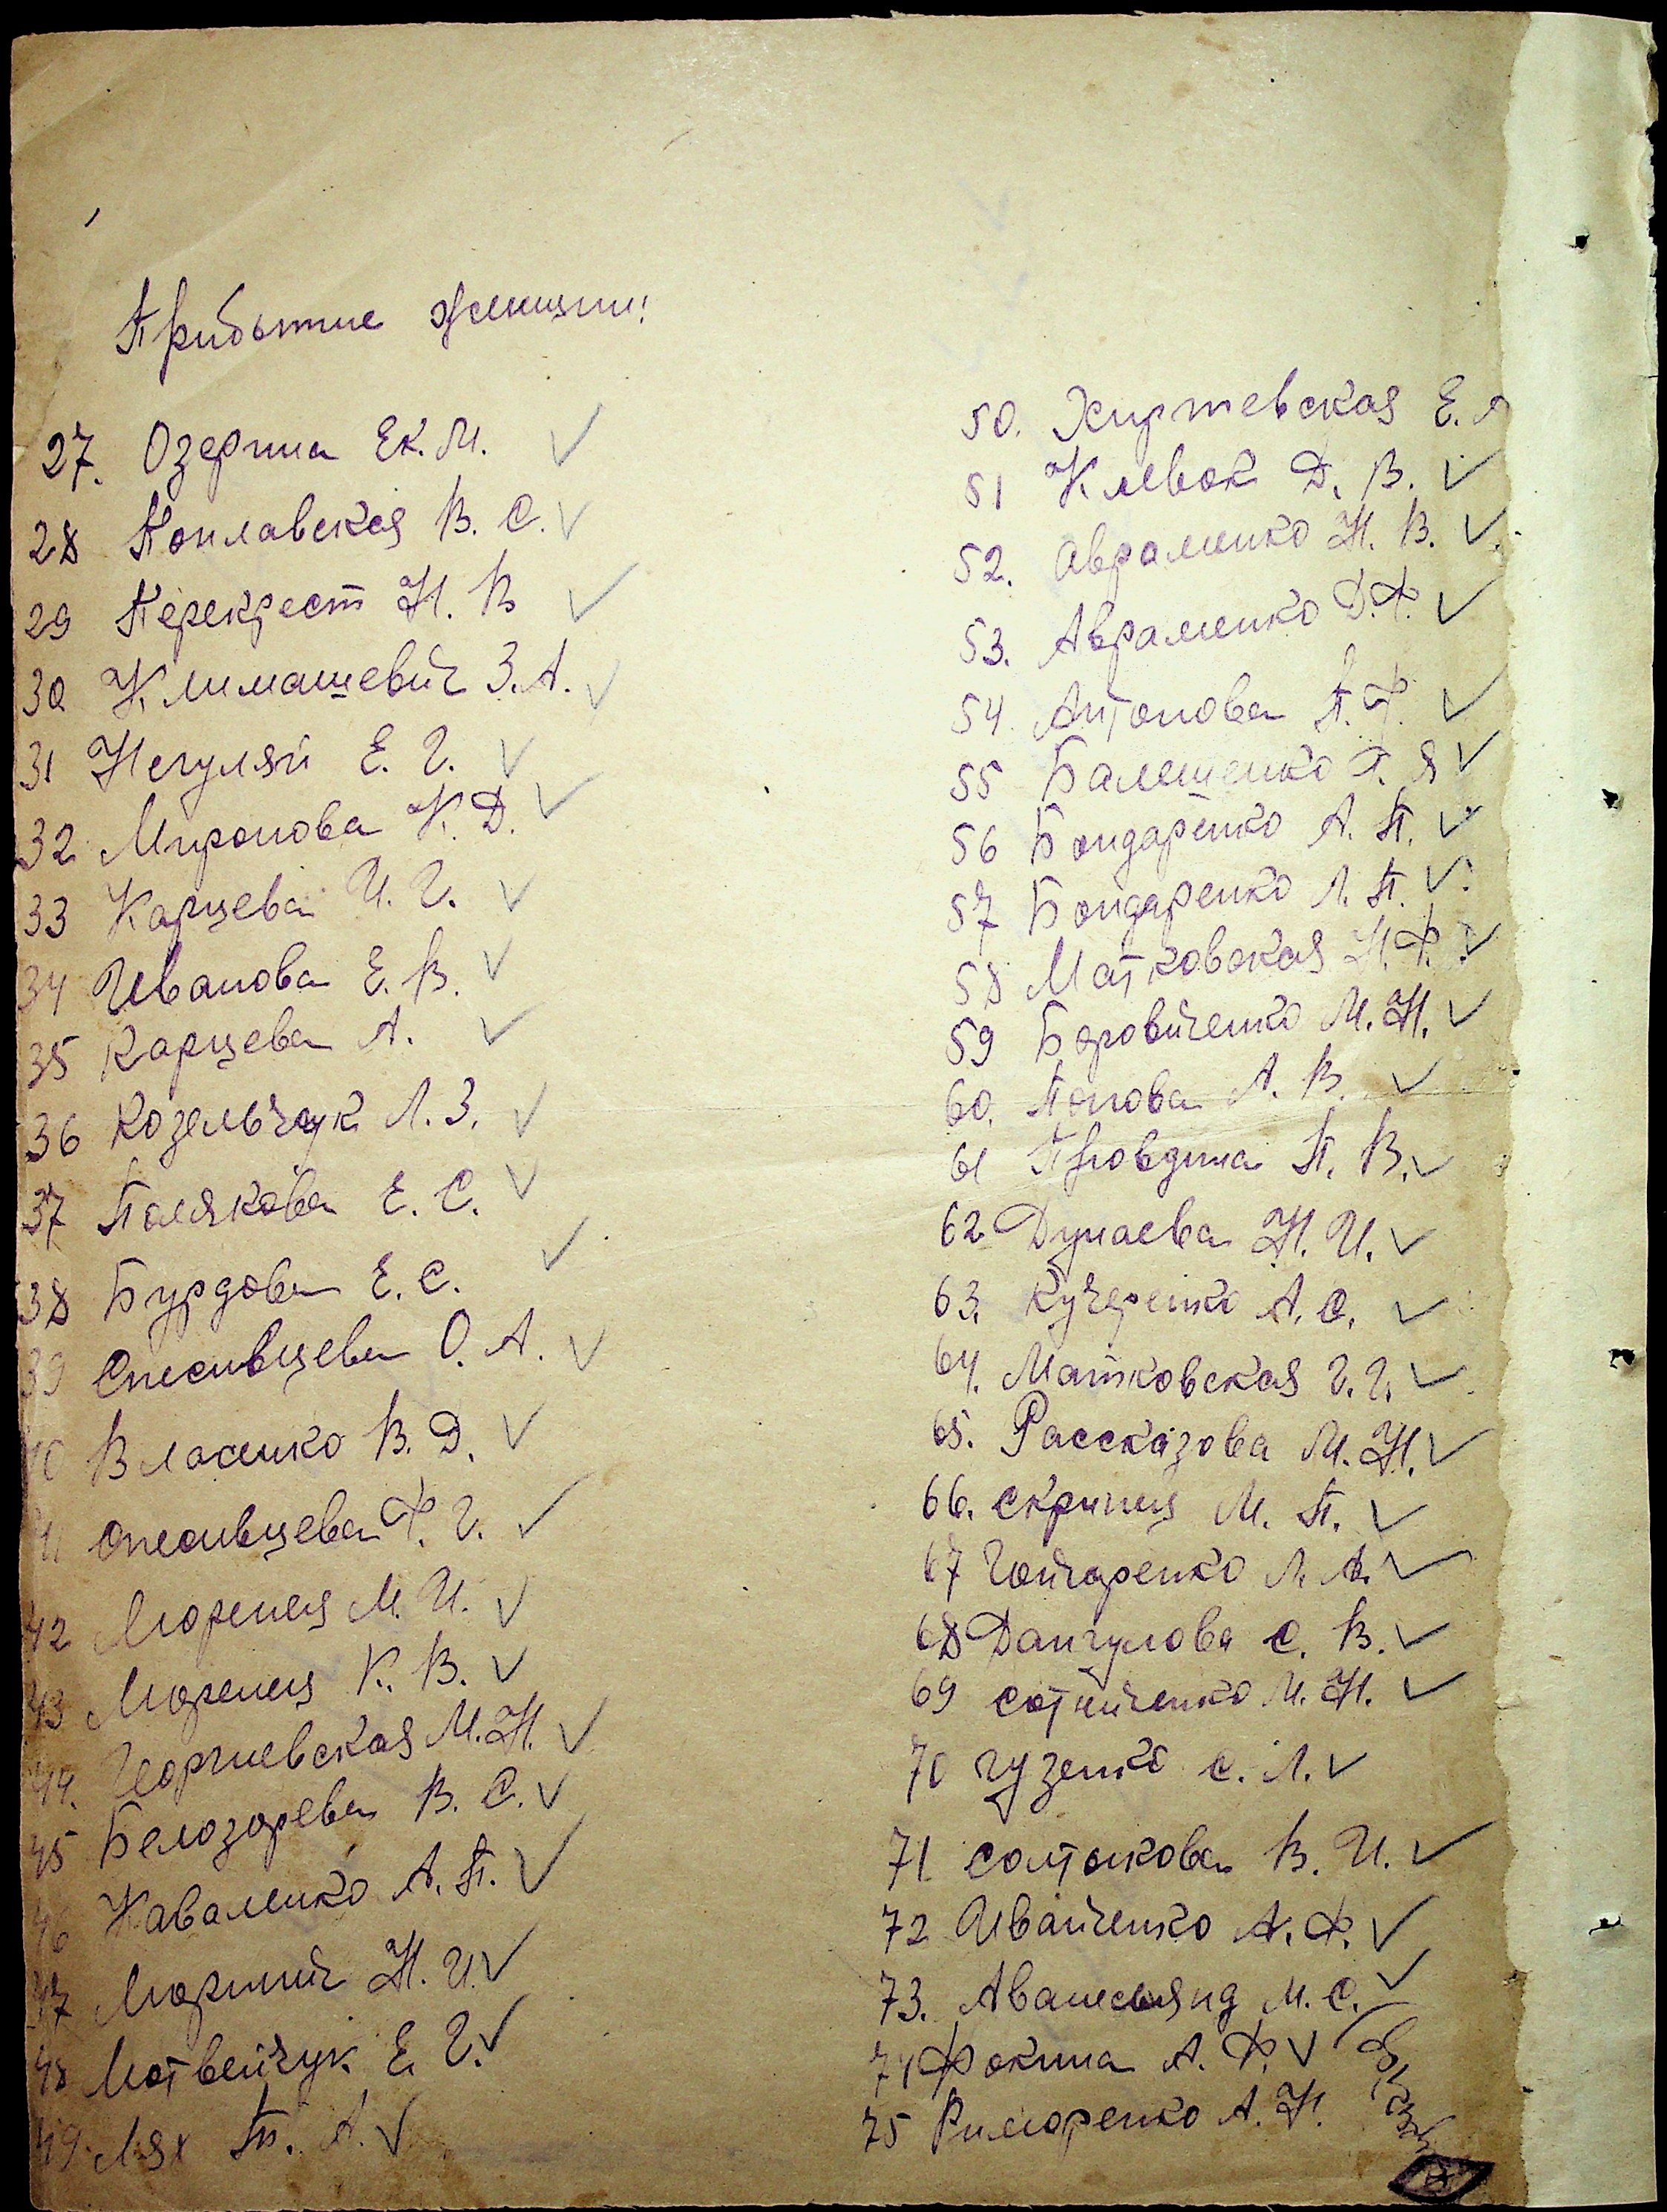 Прибытие женщин:
27. Озерина Ек. М.
28 Поплавская В. С.
29 Перекрест Н. В
30 Климашевич З. А.
31 Негуляй Е. Г.
32 Миронова К. Д.
33 Карцева И. Г.
34 Иванова Е. В.
35 Карцева А.
36 Козельчук Л. З.
37 Полякова Е. С.
38 Бурдова Е. С.
39 Спесивцева О. А.
40 Власенко В. Д.
41 Спесивцева Ф. Г.
42 Моренец М. И.
43 Моренец К. В.
44. Георгиевская М. Н.
45 Белозорева В. С.
46 Каваленко А. П.
47 Н. И.
48 Мотвейчук Е. Г.
49. Лях П. А.
50. Е.
51 Клевок Д. В.
52. Авраменко Н. В.
53. Авраменко Д. Ф.
54. Антонова П. Ф.
55 Я
56 Бондаренко А. П.
57 Бондаренко Л. П.
58 Матковская Н. Ф.
59 Боровиченко М. Н.
60. Попова А. В.
61 Провдина П. В.
62 Дунаева Н. И.
63. Кучеренко А. С.
64. Матковская Г. Г.
65. Рассказова М. Н.
66. Скрипец М. П.
67 Гончаренко Л. А.
68 Дангулова С. В.
69 Сотниченко М. Н.
70 Гузенко С. Л.
71 Солтыкова В. И.
72 Иванченко А. Ф.
73. М. С.
74 Фокина А. Ф.
75 Риморенко А. Н.